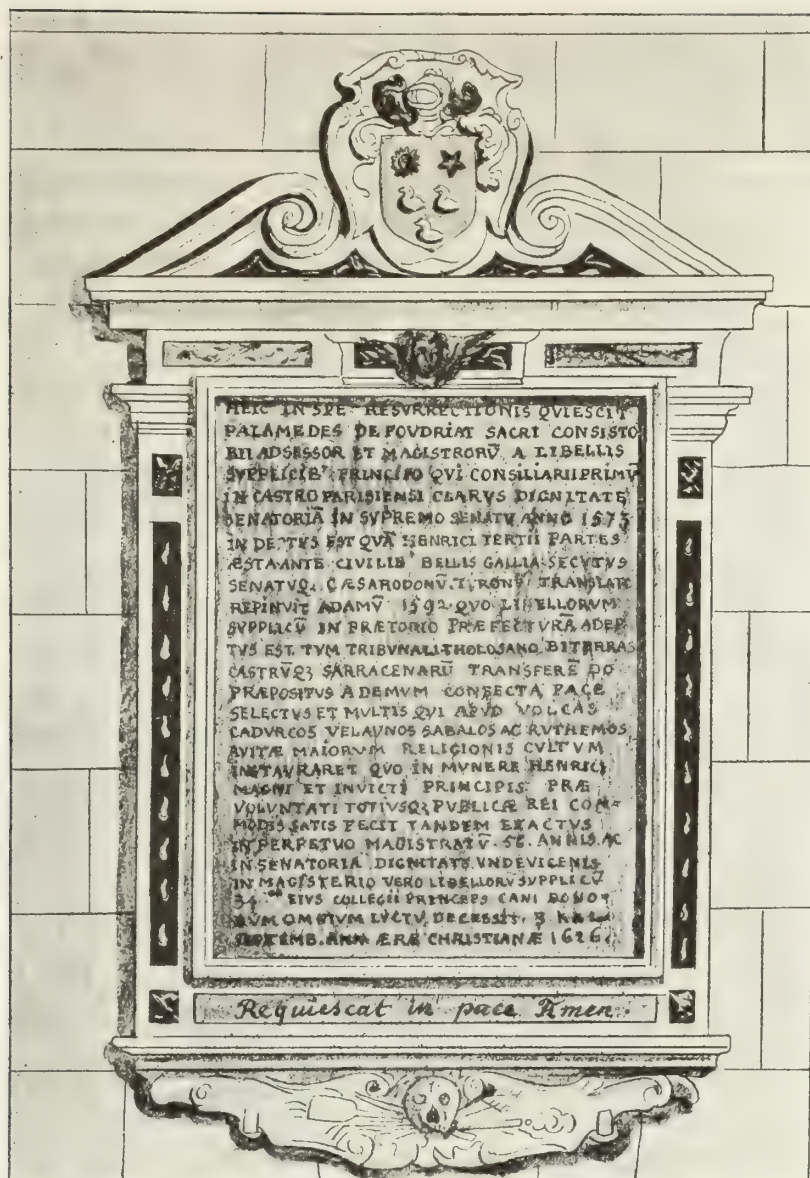 HEIC IN SPE RESVRRECTIONIS QVIESCIT
PALAMEDES DE FOVDRIAT SACRI CONSISTO
RII ADSESSOR ET MAGISTRORV̄ A LIBELLIS
SVPPLICIB' PRINCIPO QVI CONSILIARII PRIMV̄
IN CASTRO PARISIENSI CLARVS DIGNITATE
SENATORIĀ IN SVPREMO SENATV ANNO 1573
IN DE TVS EST QVĀ HENRICI TERTII PARTES
ÆSTA ANTE CIVILIB' BELLIS GALLIA SECVTVS
SENATVQ. CÆSARODONV̄. TVRONV̄ TRANSLAT
REPINVIT ADAMV̄ 1592 QVO LIBELLORVM
SVPPLICV̄ IN PRÆTORIO PRÆFECTVRĀ ADEP
TVS EST. TVM TRIBVNALI THOLOSANO BITERRAS
CASTRV̄Qꝫ SARRACENARŪ TRANSFERĒDO
PRÆPOSITVS ADEMVM CONFECTA PACE
SELECTVS ET MVLTIS QVI APVD VOLCAS
CADVRCOS VELAVNOS GABALOS AC RVTHEMOS
AVITÆ MAIORVM RELIGIONIS CVLTVM
INSTAVRARET QVO IN MVNERE HENRICI
MAGNI ET INVICTI PRINCIPIS PRÆ
VOLVNTATI TOTIVSQꝫ PVBLICÆ REI COM-
MODIS SATIS FECIT TANDEM EXACTVS
IN PERPETVO MAGISTRATV̄. 56. ANNIS. AC
IN SENATORIA DIGNITATE VNDEVICENIS
IN MAGISTERIO VERO LIBELLORV̄ SVPPLICV̄
34 EIVS COLLEGII PRINCEPS CANI BONO
RVM OMNIVM LVCTV DECESSIT. 3 KAL
SEPTEMB. ANN ÆRÆ CHRISTIANÆ 1626
Requiescat in pace Amen.